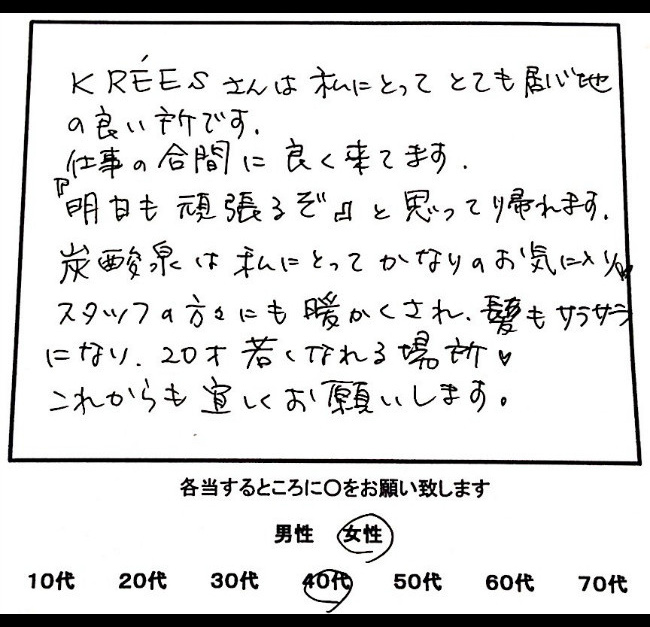 KRÉESさんは私にとってとても居心地
の良い所です.
仕事の合間に良く来てます.
『明日も頑張るぞ』と思って帰れます.
炭酸泉は私にとってかなりのお気に入り♥
スタッフの方々にも暖かくされ、髪もサラサラ
になり、20才若くなれる場所♥
これからも宜しくお願いします。
各当するところに〇をお願い致します
男性 女性
10代 20代 30代 40代 50代 60代 70代